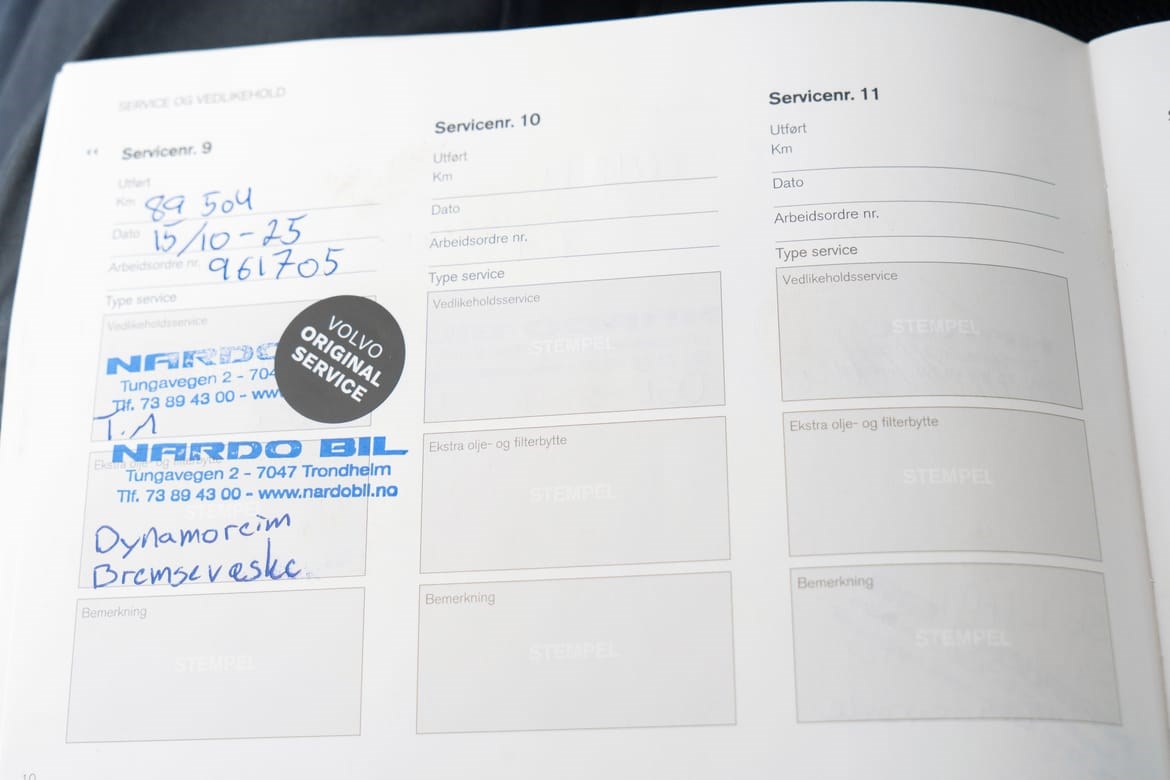 SERVICE OG VEDLIKEHOLD
Servicenr. 9
Utført
Km 89 504
Dato 15/10-25
Arbeidsordre nr. 961705
Type service
Vedlikeholdsservice
NARDO
Tungavegen 2 - 704
Tlf. 73 89 43 00 - ww
VOLVO
ORIGINAL
SERVICE
Ekstra olje- og filterbytte
NARDO BIL
Tungavegen 2 - 7047 Trondheim
Tlf. 73 89 43 00 - www.nardobil.no
STEMPEL
Dynamoreim
Bremsevæske.
Bemerkning
STEMPEL
Servicenr. 10
Utført
Km
Dato
Arbeidsordre nr.
Type service
Vedlikeholdsservice
STEMPEL
Ekstra olje- og filterbytte
STEMPEL
Bemerkning
STEMPEL
Servicenr. 11
Utført
Km
Dato
Arbeidsordre nr.
Type service
Vedlikeholdsservice
STEMPEL
Ekstra olje- og filterbytte
STEMPEL
Bemerkning
STEMPEL
10